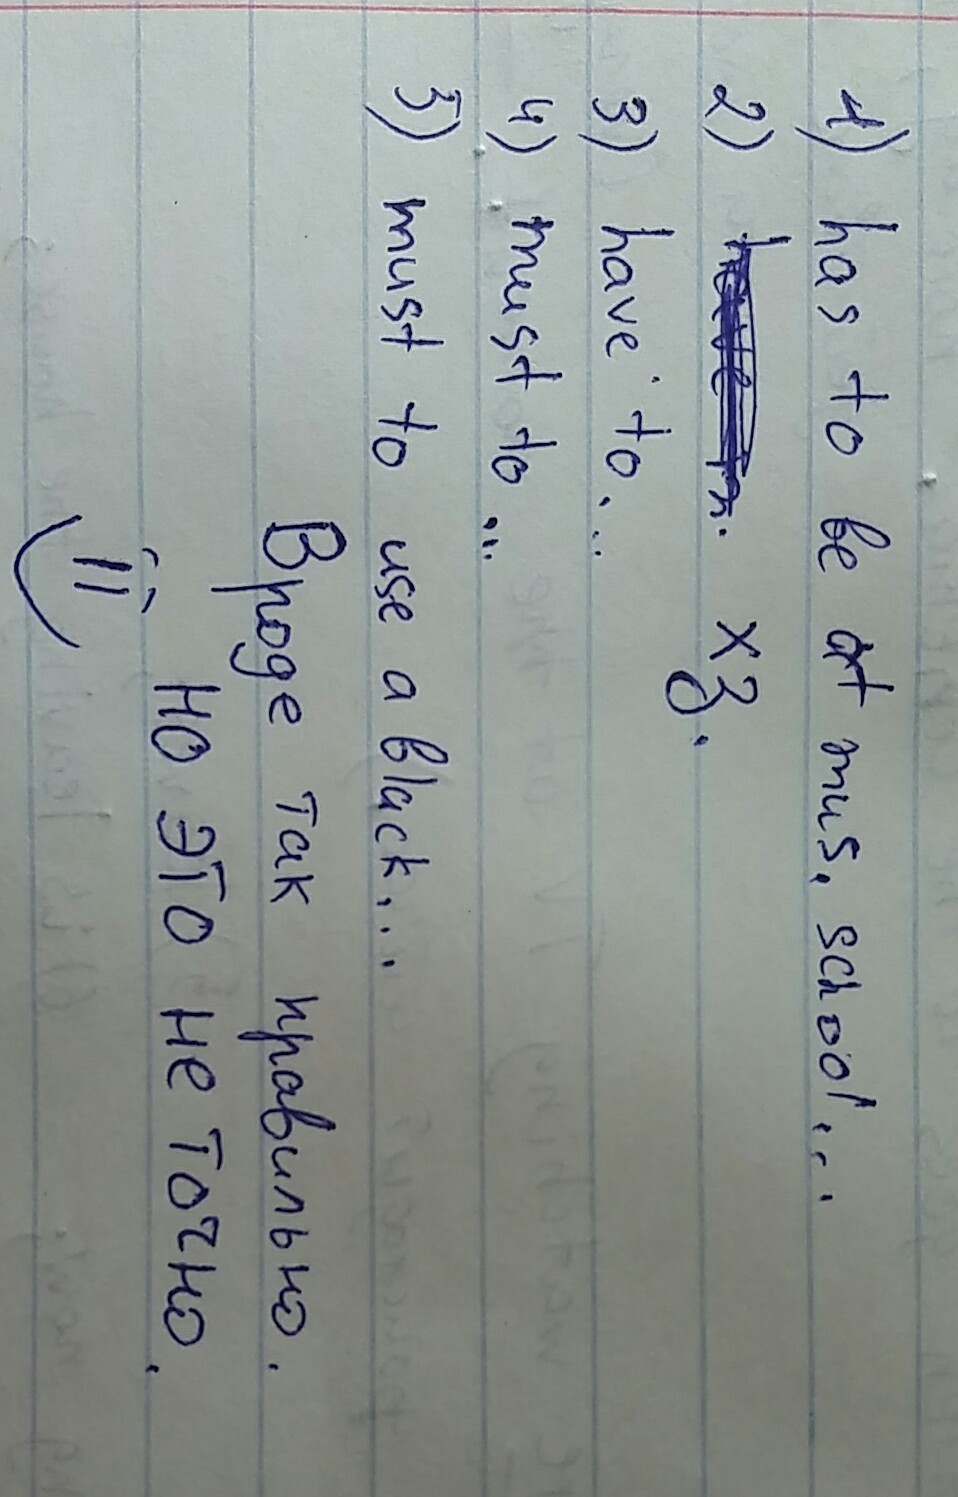 1) has to be at mus. school...
2) хз.
3) have to...
4) must to...
5) must to use a black...
Вроде так правильно.
но это не точно.